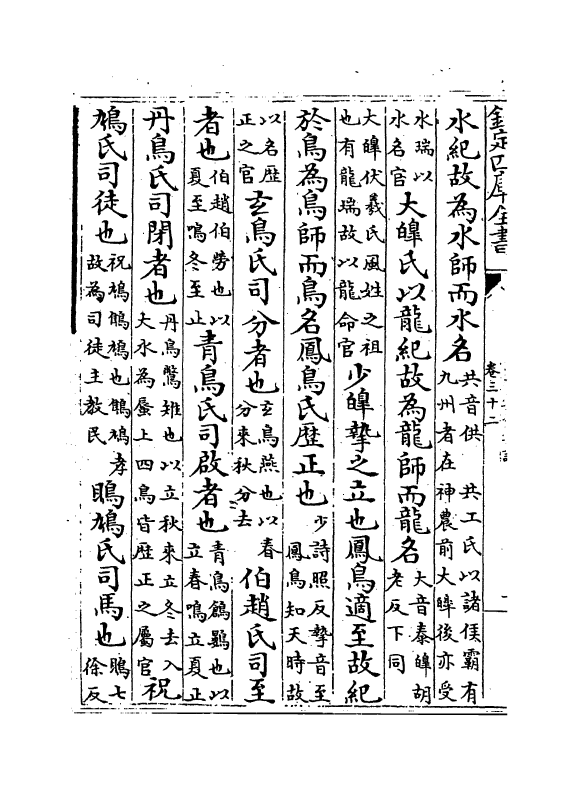 欽定四庫全書
卷三十二
水紀故為水師而水名共音供　共工氏以諸侯霸有九州者在神農前大皥後亦受
水瑞以水名官大皥氏以龍紀故為龍師而龍名大音泰皥胡老反下同
大皥伏羲氏風姓之祖也有龍瑞故以龍命官少皥摯之立也鳳鳥適至故紀
於鳥為鳥師而鳥名鳳鳥氏歴正也少詩照反摯音至鳳鳥知天時故
以名歴正之官玄鳥氏司分者也玄鳥燕也以春分來秋分去伯趙氏司至
者也伯趙伯勞也以夏至鳴冬至止青鳥氏司啟者也青鳥鶬鴳也以立春鳴立夏止
丹鳥氏司閉者也丹鳥鷩雉也以立秋來立冬去入大水為蜃上四鳥皆歴正之屬官祝
鳩氏司徒也祝鳩鷦鳩也鷦鳩孝故為司徒主教民鴡鳩氏司馬也鴡七徐反